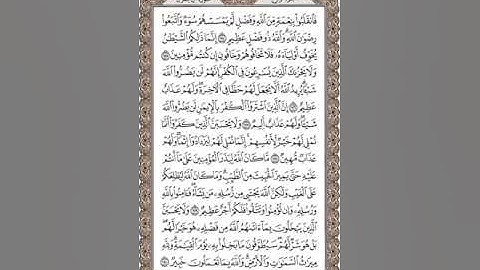 فَٱنقَلَبُوا۟ بِنِعْمَةٍ مِّنَ ٱللَّهِ وَفَضْلٍ لَّمْ يَمْسَسْهُمْ سُوٓءٌ وَٱتَّبَعُوا۟
رِضْوَٰنَ ٱللَّهِ وَٱللَّهُ ذُو فَضْلٍ عَظِيمٍ إِنَّمَا ذَٰلِكُمُ ٱلشَّيْطَٰنُ
يُخَوِّفُ أَوْلِيَآءَهُۥ فَلَا تَخَافُوهُمْ وَخَافُونِ إِن كُنتُم مُّؤْمِنِينَ
وَلَا يَحْزُنكَ ٱلَّذِينَ يُسَٰرِعُونَ فِى ٱلْكُفْرِ إِنَّهُمْ لَن يَضُرُّوا۟ ٱللَّهَ
شَيْـًٔا يُرِيدُ ٱللَّهُ أَلَّا يَجْعَلَ لَهُمْ حَظًّا فِى ٱلْءَاخِرَةِ وَلَهُمْ عَذَابٌ
عَظِيمٌ إِنَّ ٱلَّذِينَ ٱشْتَرَوُا۟ ٱلْكُفْرَ بِٱلْإِيمَٰنِ لَن يَضُرُّوا۟ ٱللَّهَ
شَيْـًٔا وَلَهُمْ عَذَابٌ أَلِيمٌ وَلَا يَحْسَبَنَّ ٱلَّذِينَ كَفَرُوٓا۟ أَنَّمَا
نُمْلِى لَهُمْ خَيْرٌ لِّأَنفُسِهِمْ إِنَّمَا نُمْلِى لَهُمْ لِيَزْدَادُوٓا۟ إِثْمًا وَلَهُمْ
عَذَابٌ مُّهِينٌ مَّا كَانَ ٱللَّهُ لِيَذَرَ ٱلْمُؤْمِنِينَ عَلَىٰ مَآ أَنتُمْ
عَلَيْهِ حَتَّىٰ يَمِيزَ ٱلْخَبِيثَ مِنَ ٱلطَّيِّبِ وَمَا كَانَ ٱللَّهُ لِيُطْلِعَكُمْ
عَلَى ٱلْغَيْبِ وَلَٰكِنَّ ٱللَّهَ يَجْتَبِى مِن رُّسُلِهِۦ مَن يَشَآءُ فَـَٔامِنُوا۟ بِٱللَّهِ
وَرُسُلِهِۦ وَإِن تُؤْمِنُوا۟ وَتَتَّقُوا۟ فَلَكُمْ أَجْرٌ عَظِيمٌ وَلَا يَحْسَبَنَّ
ٱلَّذِينَ يَبْخَلُونَ بِمَآ ءَاتَىٰهُمُ ٱللَّهُ مِن فَضْلِهِۦ هُوَ خَيْرًا لَّهُم
بَلْ هُوَ شَرٌّ لَّهُمْ سَيُطَوَّقُونَ مَا بَخِلُوا۟ بِهِۦ يَوْمَ ٱلْقِيَٰمَةِ وَلِلَّهِ
مِيرَٰثُ ٱلسَّمَٰوَٰتِ وَٱلْأَرْضِ وَٱللَّهُ بِمَا تَعْمَلُونَ خَبِيرٌ